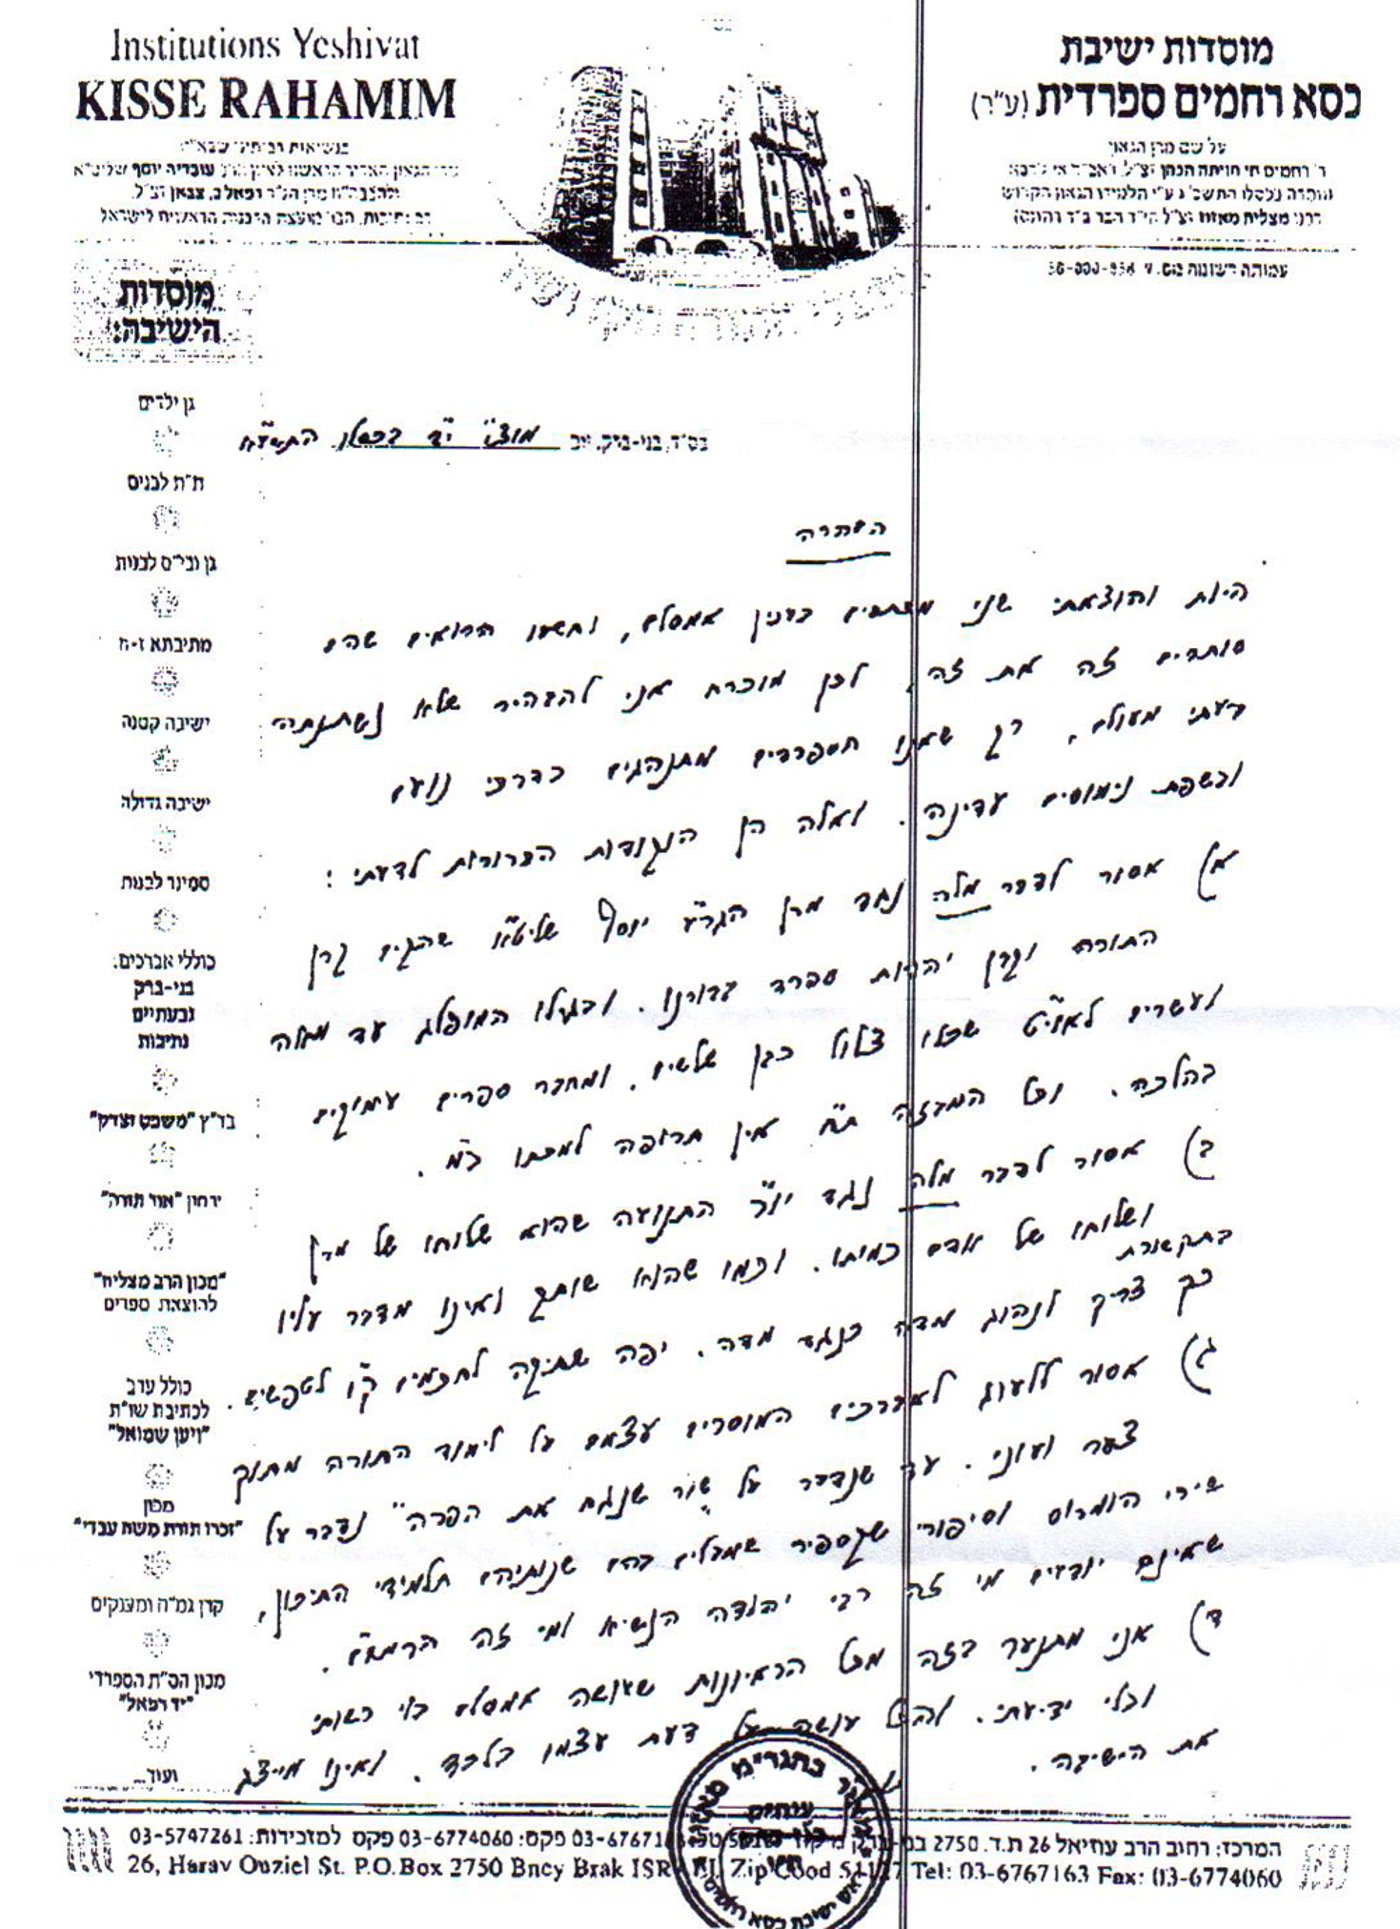 Institutions Yeshivat
KISSE RAHAMIM
מוסדות ישיבת
כסא רחמים ספרדית (ע"ר)
על שם מרן הגאון
עובדיה יוסף שליט"א
מוסדות
הישיבה:
גן ילדים
ת"ת לבנים
גן ובי"ס לבנות
מתיבתא ז-ח
ישיבה קטנה
ישיבה גדולה
סמינר לבנות
כוללי אברכים:
בני-ברק
גבעתיים
נתיבות
בד"ץ "משפט וצדק"
ירחון "אור תורה"
"מכון הרב מצליח"
להוצאת ספרים
כולל ערב
לכתיבת שו"ת
"ויען שמואל"
מכון
"זכרו תורת משה עבדי"
קרן גמ"ח ומענקים
מכון הס"ת הספרדי
"יד רפאל"
ועוד...
בס"ד, בני-ברק, יום מוצ"ש י"ד בכסלו התשע"ח
הבהרה
היות והוצאתי שני מכתבים בענין אמסלם, וחשבו הרואים שהם
סותרים זה את זה, לכן מוכרח אני להבהיר שלא נשתנתה
דעתי מעולם, רק שאנו הספרדים מתנהגים בדרכי נועם
ובשפת נימוסים עדינה. ואלה הן הנקודות הברורות לדעתי:
א) אסור לדבר מלה נגד מרן הגר"ע יוסף שליט"א שהקים קרן
התורה וקרן יהדות ספרד בדורנו. ובגילו המופלג עד מאה
ועשרים לאוי"ט שכלו צלול כבן שלשים, ומחבר ספרים עמוקים
בהלכה. וכל המבזה ת"ח אין תרופה למכתו ח"ו.
ב) אסור לדבר מלה נגד יו"ר התנועה שהוא שלוחו של מרן
ושלוחו של אדם כמותו. וכמו שהוא שותק ואינו מדבר עליו
בתקשורת
כך צריך לנהוג מדה כנגד מדה. יפה שתיקה לחכמים ק"ו לטפשים.
ג) אסור ללעוג לאברכים המוסרים עצמם על לימוד התורה מתוך
צער ועוני. עד שנדבר על "שור שנגח את הפרה" נדבר על
שירי הומרוס וסיפורי שקספיר שמבלים בהם שנותיהם תלמידי התיכון,
שאינם יודעים מי זה רבי יהודה הנשיא ומי זה הרמב"ם.
ד) אני מתנער בזה מכל הראיונות שעושה אמסלם בלי רשותי
ובלי ידיעתי. והכל עושה על דעת עצמו בלבד. ואינו מייצג
את הישיבה.
המרכז: רחוב הרב עוזיאל 26 ת.ד. 2750 פקס: 03-6774060 פקס למזכירות: 03-5747261
26, Harav Ouziel St. P.O.Box 2750 Bney Brak Tel: 03-6767163 Fax: 03-6774060